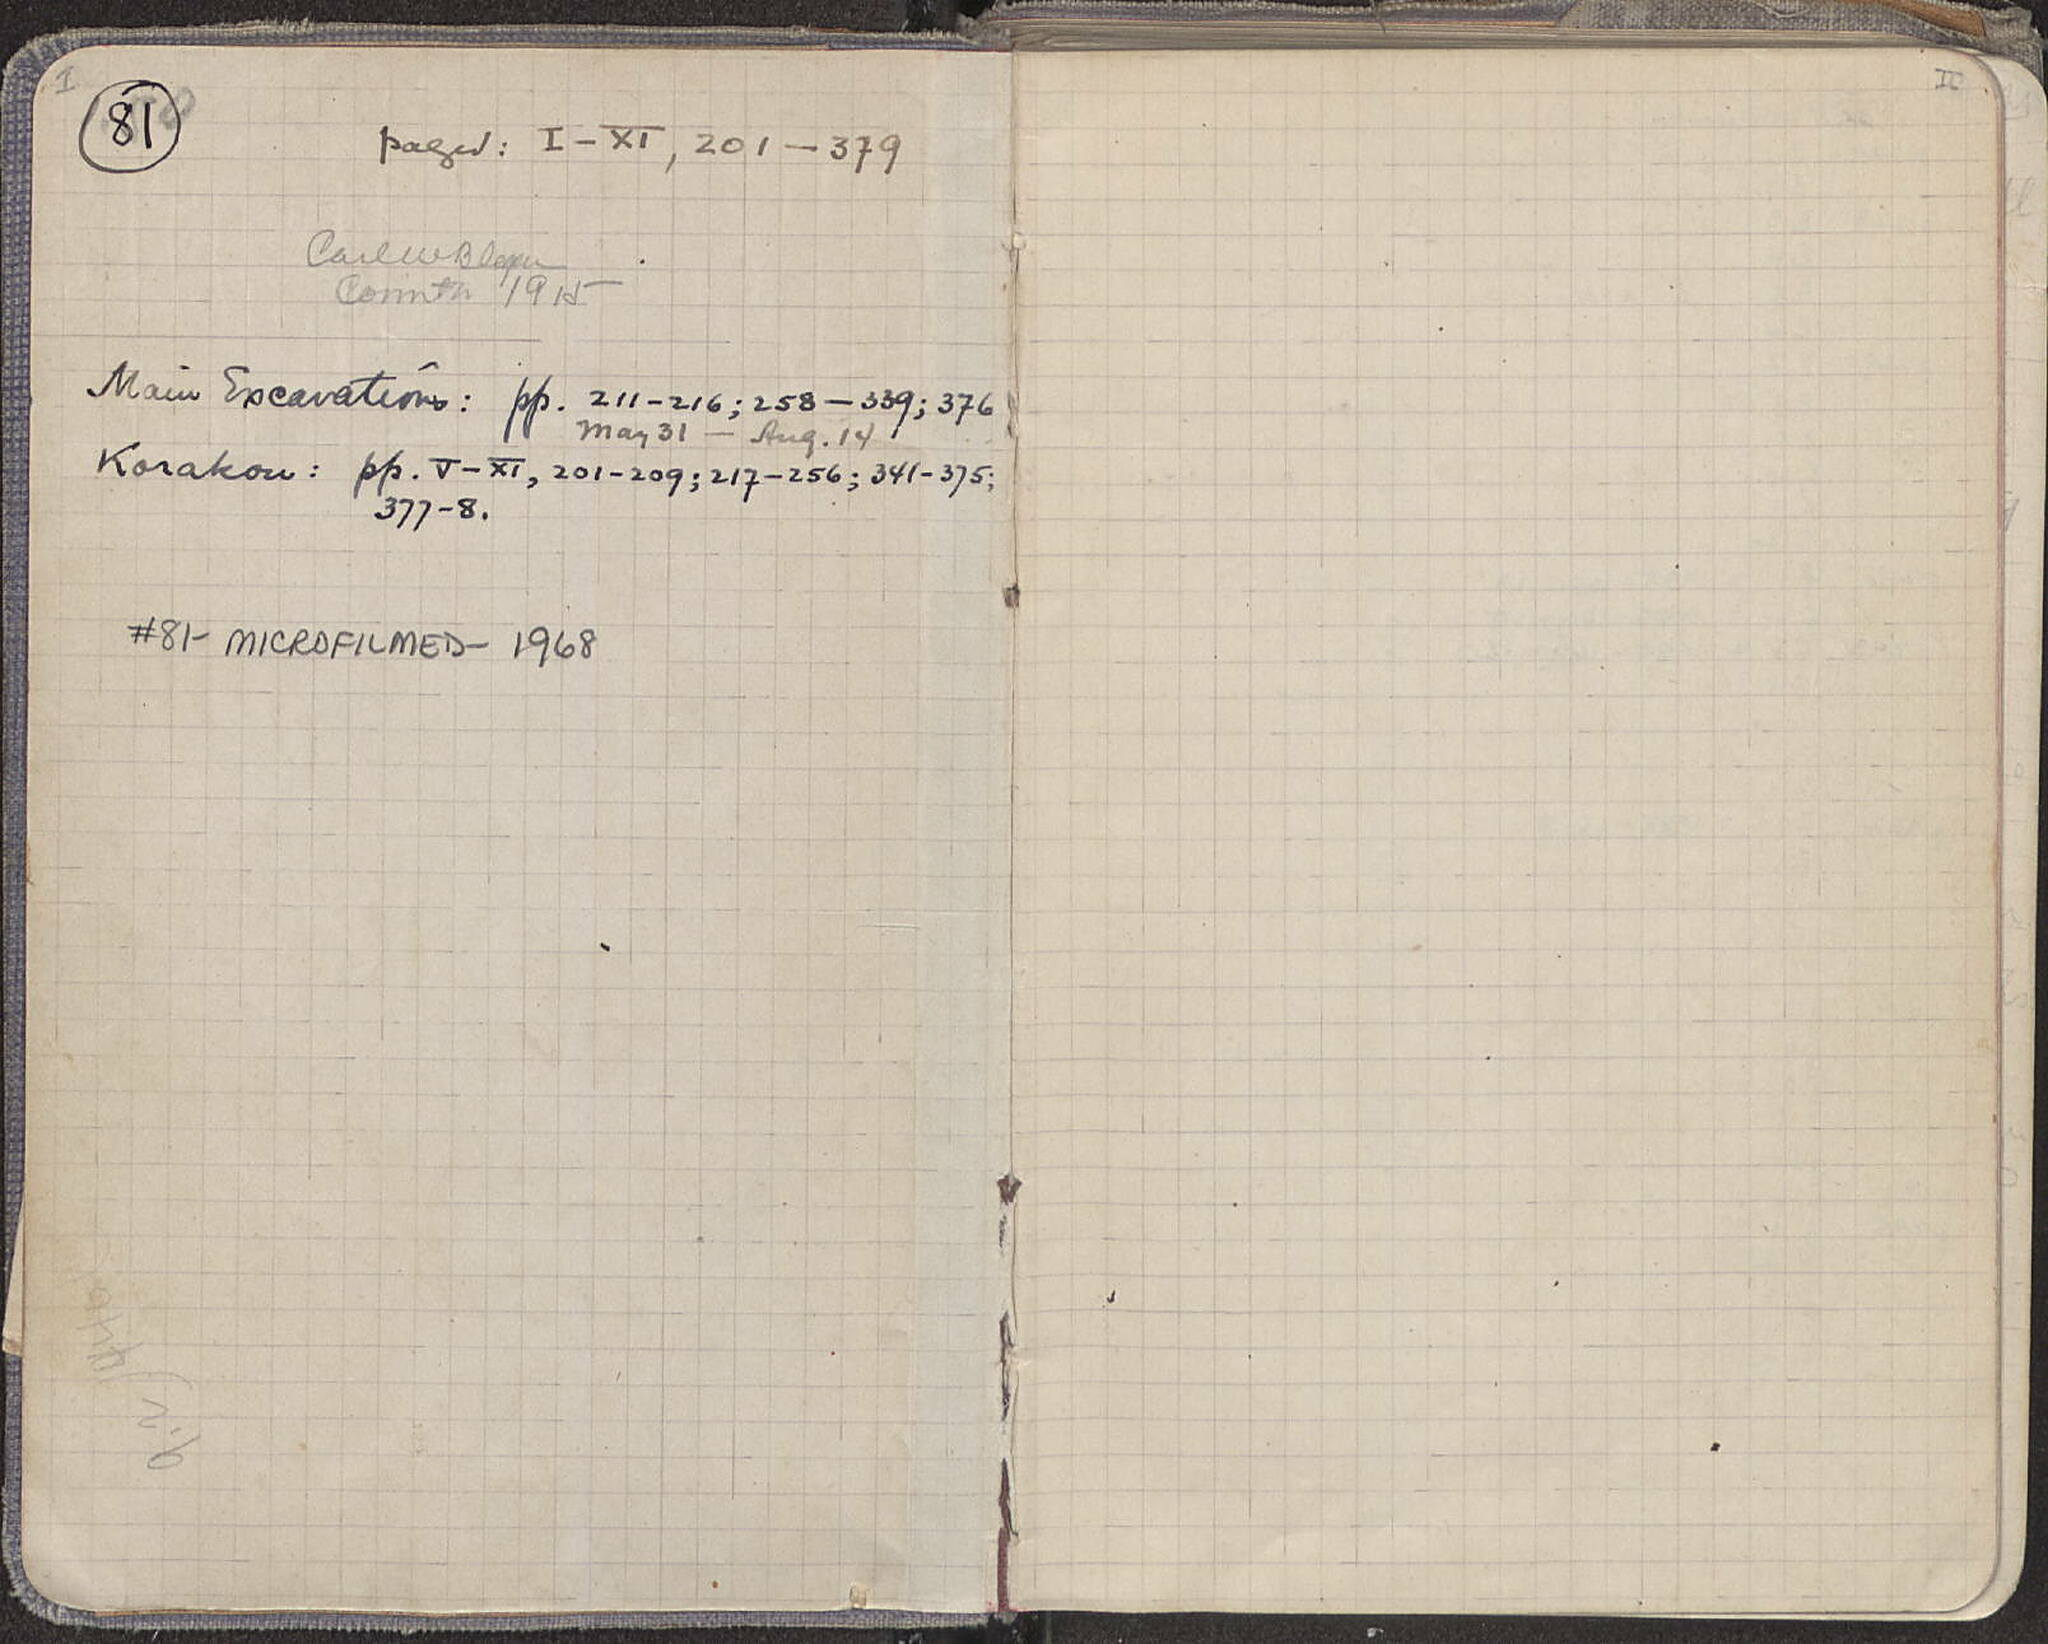 I
81
paged: I-XI, 201-379
Carl W Blegen
Corinth 1915
Main Excavations: pp. 211-216; 258-339; 376
May 31 - Aug. 14
Korakou: pp. V-XI, 201-209; 217-256; 341-375;
377-8.
#81- MICROFILMED- 1968
II